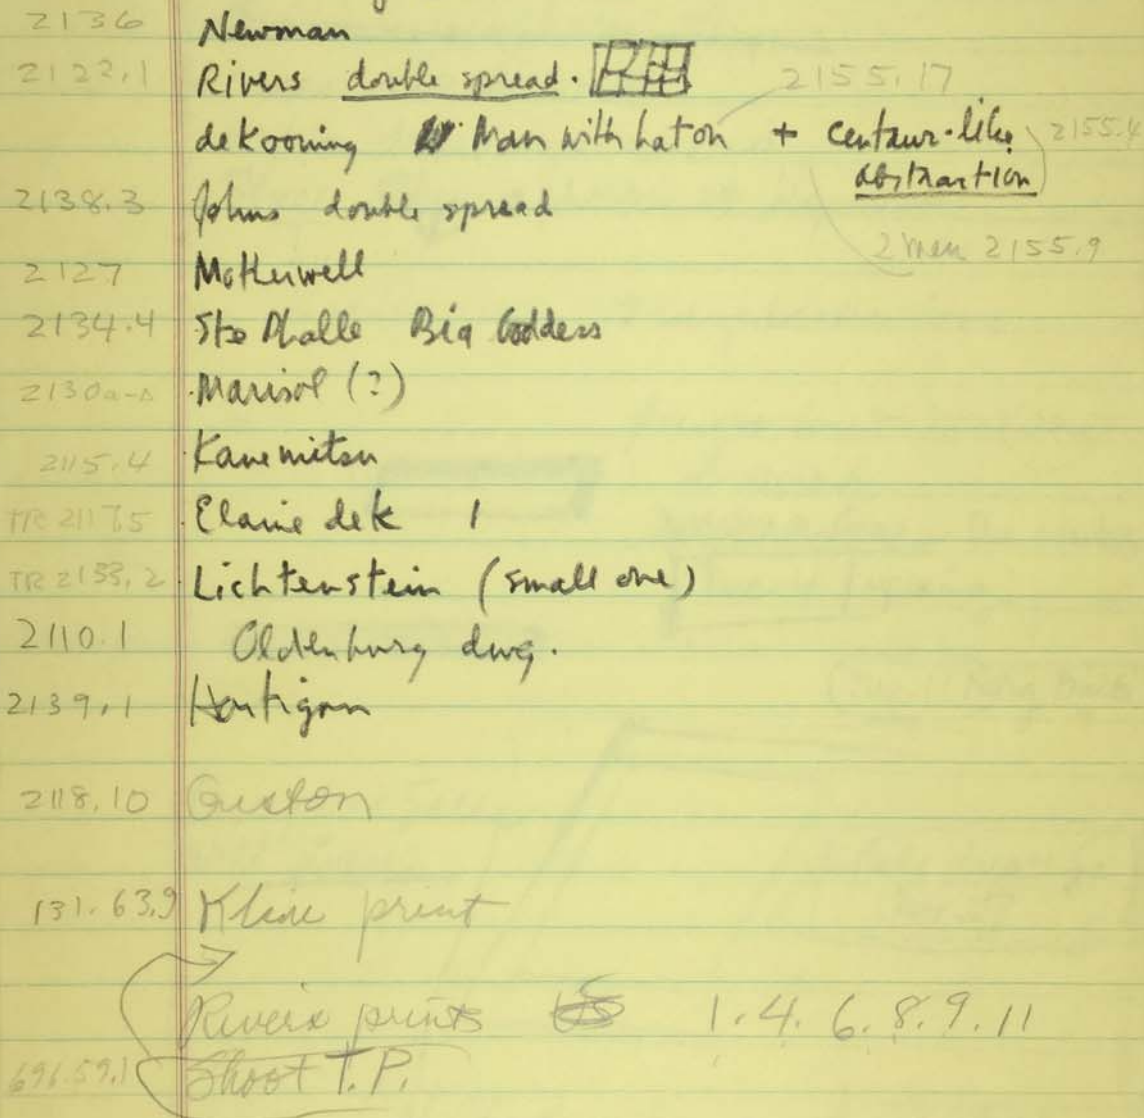 2136 Newman
2122.1 Rivers double spread. 2155.17
de Kooning Man with hat on + centaur-like 2155.4
abstraction
2138.3 Johns double spread
2 men 2155.9
2127 Motherwell
2134.4 Ste Phalle Big Goddess
2130a-s Marisol (?)
2115.4 Kanemitsu
TR 2117.5 Elaine deK 1
TR 2133.2 Lichtenstein (small one)
2110.1 Oldenburg dwg.
2139.1 Hartigan
2118.10 Guston
131.63.9 Kline print
Rivers prints 1. 4. 6. 8. 9. 11
696.59.1 Shoot T.P.